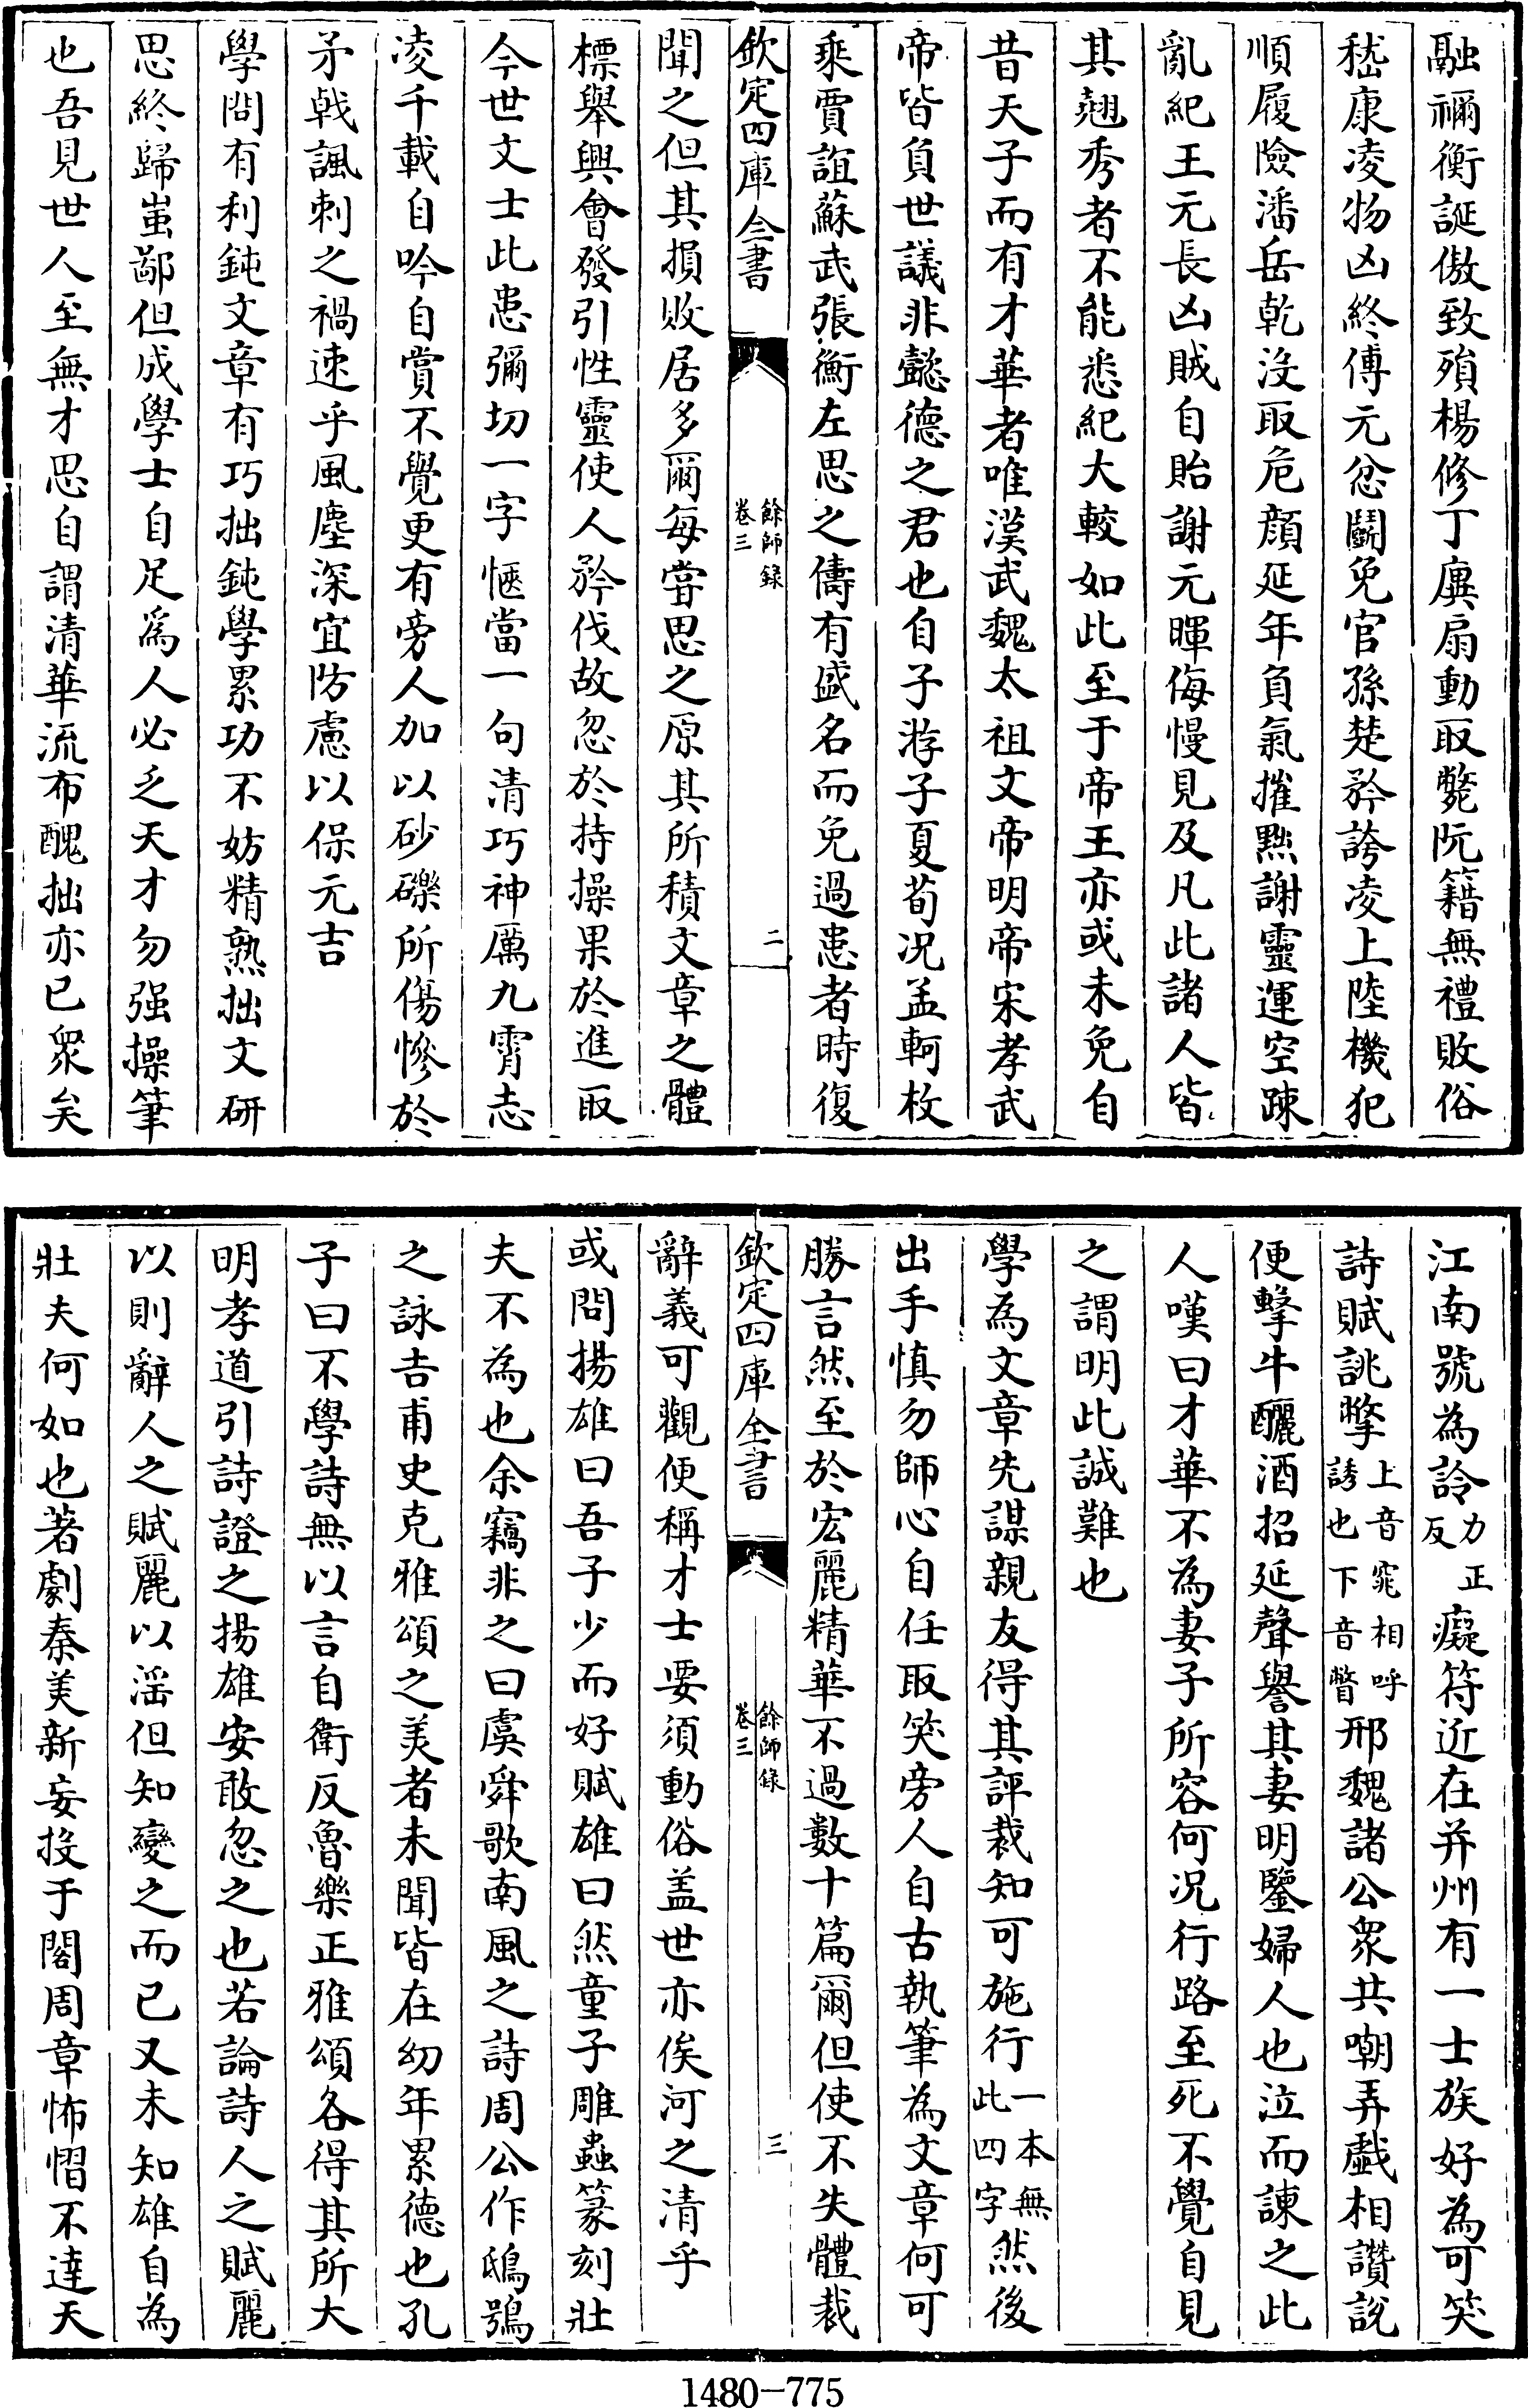 融禰衡誕傲致殞楊修丁廙扇動取斃阮籍無禮敗俗
嵇康凌物凶終傅元忿鬭免官孫楚矜誇凌上陸機犯
順履險潘岳乾沒取危顔延年負氣摧黜謝靈運空踈
亂紀王元長凶賊自貽謝元暉侮慢見及凡此諸人皆
其翹秀者不能悉紀大較如此至于帝王亦或未免自
昔天子而有才華者唯漢武魏太祖文帝明帝宋孝武
帝皆負世議非懿德之君也自子游子夏荀况孟軻枚
乘賈誼蘇武張衡左思之儔有盛名而免過患者時復
欽定四庫全書
餘師錄
卷三
二
聞之但其損敗居多爾每嘗思之原其所積文章之體
標舉興會發引性靈使人矜伐故忽於持操果於進取
今世文士此患彌切一字愜當一句清巧神厲九霄志
凌千載自吟自賞不覺更有旁人加以砂礫所傷慘於
矛戟諷刺之禍速乎風塵深宜防慮以保元吉
學問有利鈍文章有巧拙鈍學累功不妨精熟拙文研
思終歸蚩鄙但成學士自足爲人必乏天才勿强操筆
也吾見世人至無才思自謂清華流布醜拙亦已衆矣
江南號為詅力正反癡符近在并州有一士族好為可笑
詩賦誂擎上音窕相呼誘也下音瞥邢魏諸公衆共嘲弄戲相讚說
便擊牛釃酒招延聲譽其妻明鑒婦人也泣而諫之此
人嘆曰才華不為妻子所容何况行路至死不覺自見
之謂明此誠難也
學為文章先謀親友得其評裁知可施行一本無此四字然後
出手慎勿師心自任取笑旁人自古執筆為文章何可
勝言然至於宏麗精華不過數十篇爾但使不失體裁
欽定四庫全書
餘師錄
卷三
三
辭義可觀便稱才士要須動俗盖世亦俟河之清乎
或問揚雄曰吾子少而好賦雄曰然童子雕蟲篆刻壯
夫不為也余竊非之曰虞舜歌南風之詩周公作鴟鴞
之詠吉甫史克雅頌之美者未聞皆在幼年累德也孔
子曰不學詩無以言自衛反魯樂正雅頌各得其所大
明孝道引詩證之揚雄安敢忽之也若論詩人之賦麗
以則辭人之賦麗以淫但知變之而已又未知雄自為
壯夫何如也著劇秦美新妄投于閣周章怖慴不達天
1480-775